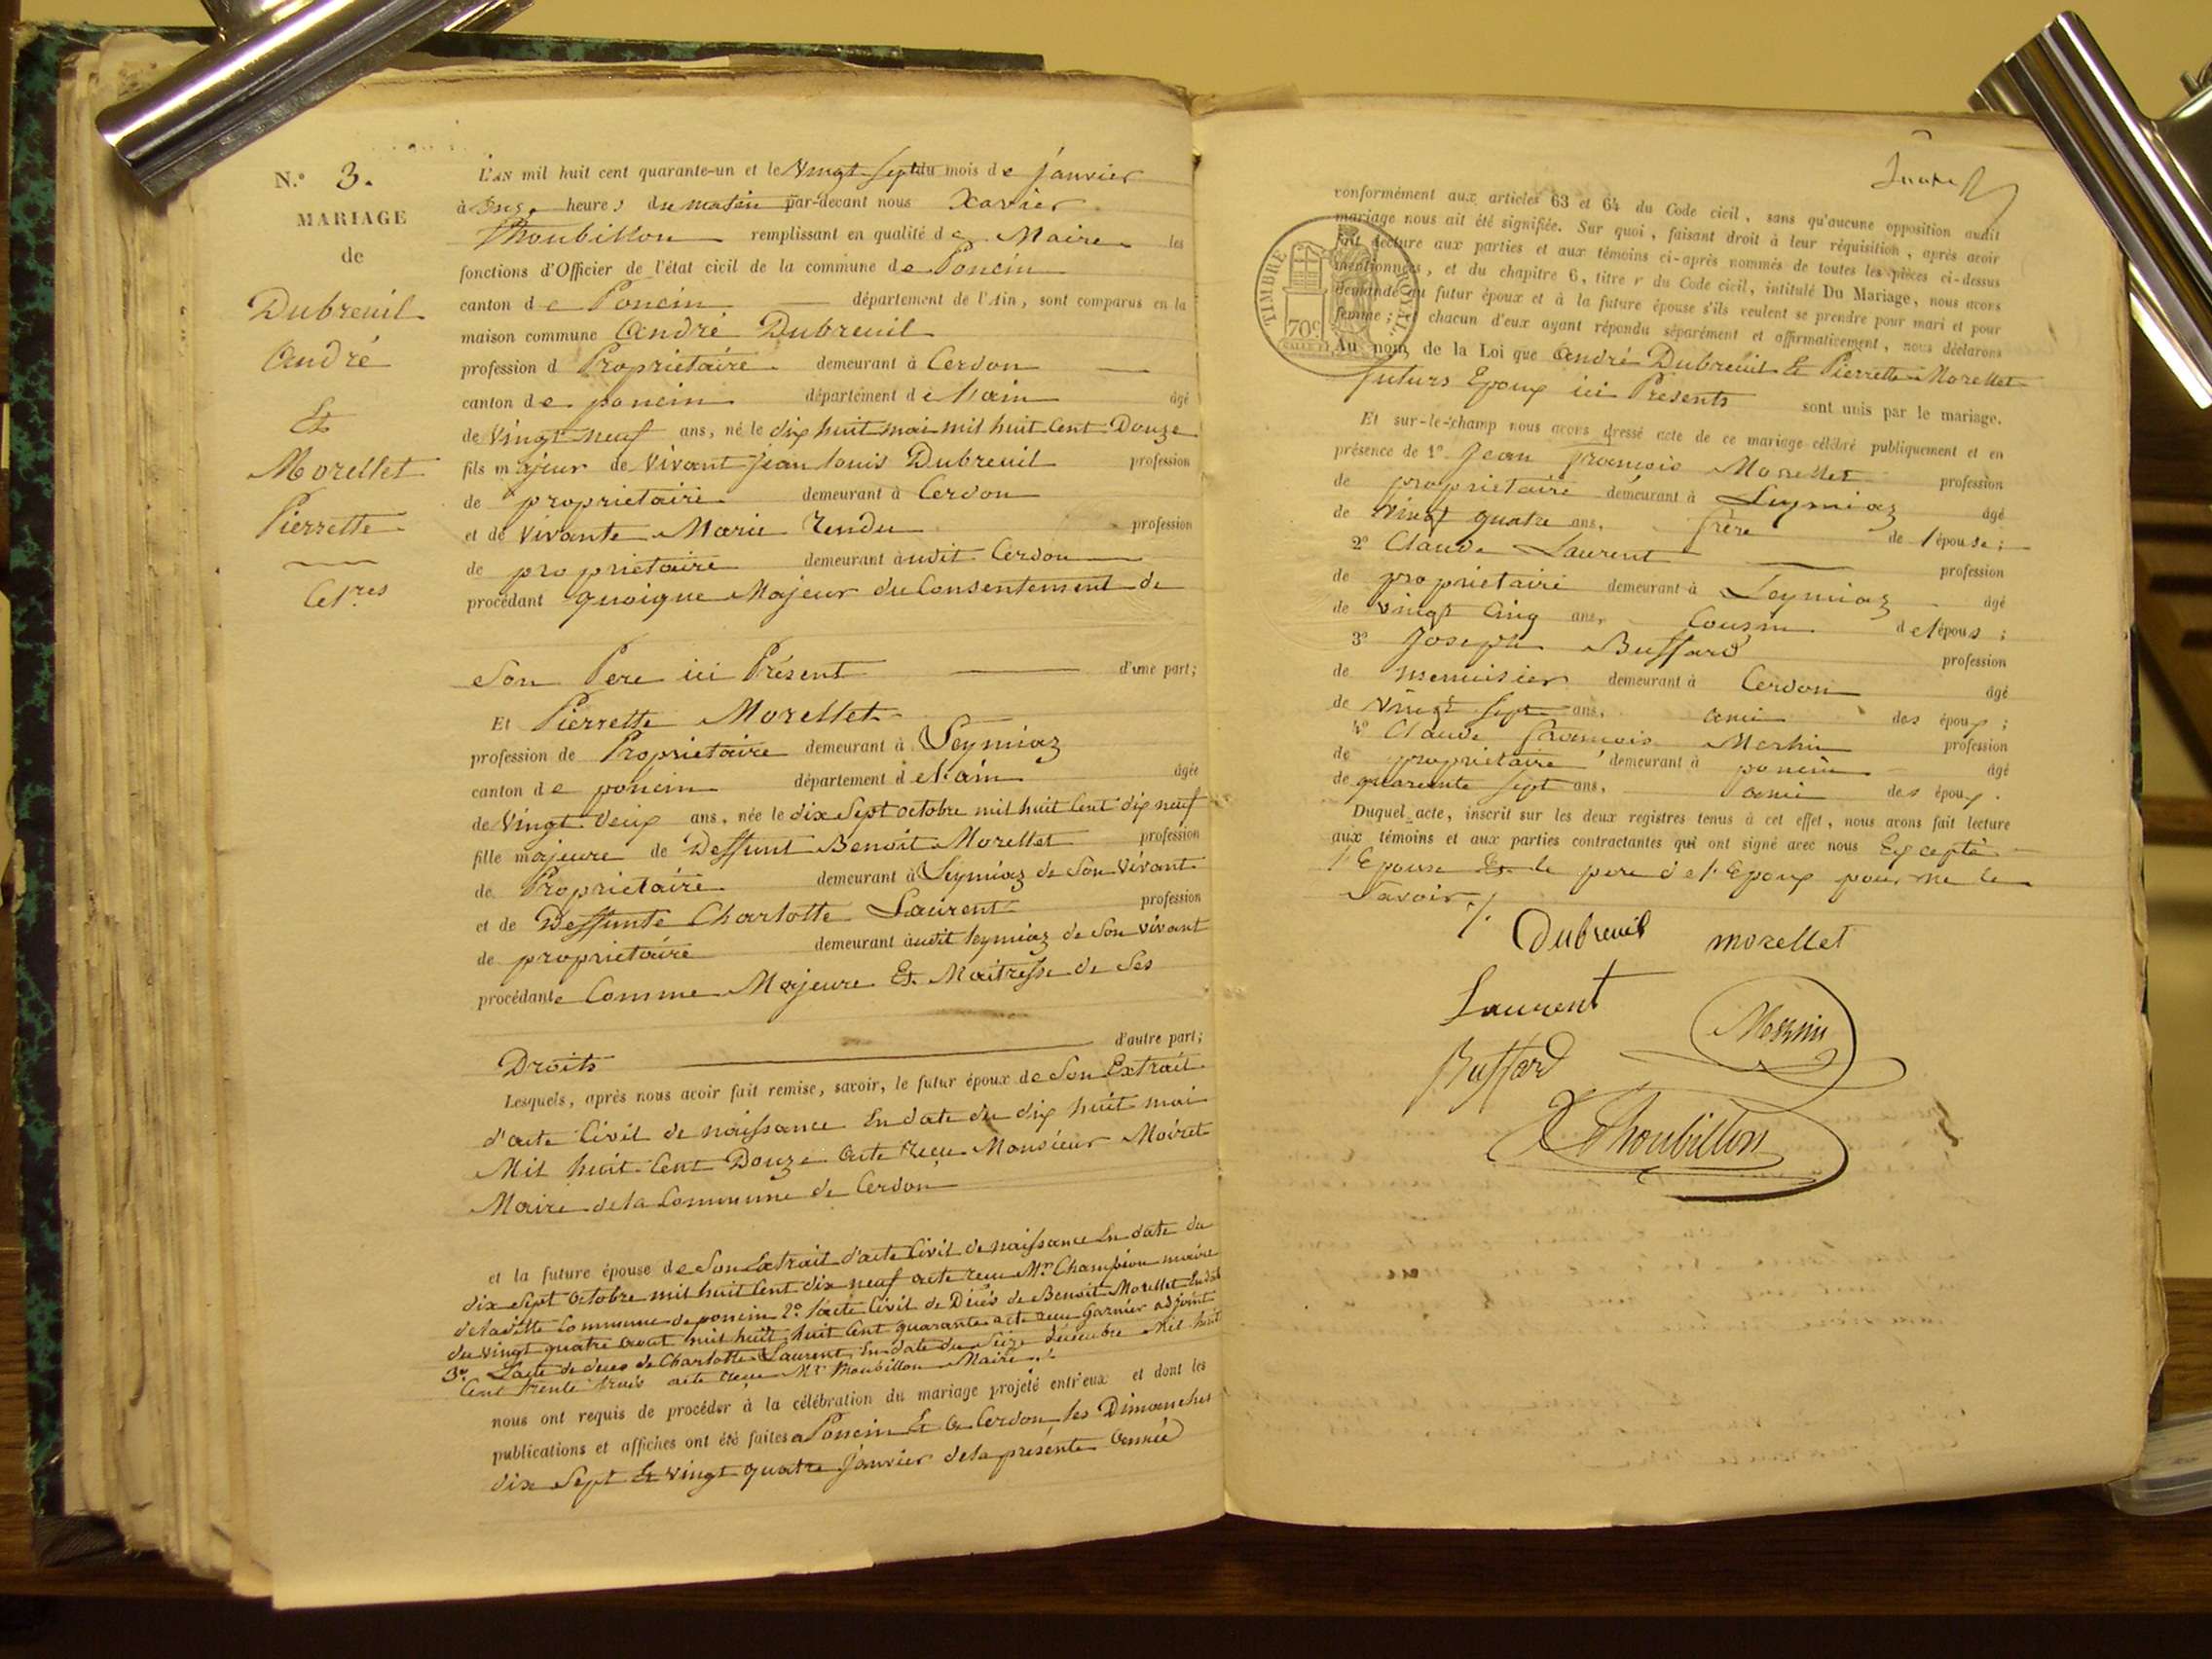 N.º 3.
MARIAGE
de
Dubreuil
André
Et
Morellet
Pierrette
Cel.res
L'AN mil huit cent quarante-un et le Vingt Sept du mois de janvier
à onze heures du matin par-devant nous Xavier
Thoubillon remplissant en qualité de Maire les
fonctions d'Officier de l'état civil de la commune de Poncin
canton de Poncin département de l'Ain, sont comparus en la
maison commune André Dubreuil
profession d Propriétaire demeurant à Cerdon
canton de poncin département de l'ain âgé
de Vingt neuf ans, né le dix huit mai mil huit Cent Douze
fils majeur de Vivant jean louis Dubreuil profession
de propriétaire demeurant à Cerdon
et de Vivante Marie Rendu profession
de propriétaire demeurant audit Cerdon
procédant quoique Majeur du Consentement de
Son Pere ici Présent d'une part;
Et Pierrette Morellet
profession de Propriétaire demeurant à Leymiaz
canton de poncin département de l'ain âgée
de Vingt Deux ans, née le dix Sept octobre mil huit Cent dix neuf
fille majeure de Deffunt Benoit Morellet profession
de Propriétaire demeurant à Leymiaz de Son Vivant
et de Deffunte Charlotte Laurent profession
de propriétaire demeurant audit leymiaz de Son vivant
procédante Comme Majeure Et Maitresse de Ses
Droits d'autre part;
Lesquels, après nous avoir fait remise, savoir, le futur époux de Son Extrait
d'acte Civil de naissance En date du dix huit mai
Mil huit Cent Douze acte reçu Monsieur Moiret
Maire de la Commune de Cerdon
et la future épouse de Son Extrait d'acte Civil de naissance En date du
dix Sept octobre mil huit Cent dix neuf acte reçu Mr. Champion maire
de ladite Commune de poncin 2º l'acte Civil de Décés de Benoit Morellet En date
du vingt quatre aout mil huit huit Cent quarante acte reçu Garnier adjoint
3º L'acte de deces de Charlotte Laurent En date du Seize décembre Mil huit
Cent trente trois acte reçu Mr Thoubillon Maire
nous ont requis de procéder à la célébration du mariage projeté entr'eux et dont les
publications et affiches ont été faites a Poncin Et a Cerdon les Dimanches
dix Sept Et vingt quatre janvier de la présente année
conformément aux articles 63 et 64 du Code civil, sans qu'aucune opposition audit
mariage nous ait été signifiée. Sur quoi, faisant droit à leur réquisition, après avoir
fait lecture aux parties et aux témoins ci-après nommés de toutes les pièces ci-dessus
mentionnées, et du chapitre 6, titre v du Code civil, intitulé Du Mariage, nous avons
demandé au futur époux et à la future épouse s'ils veulent se prendre pour mari et pour
femme; chacun d'eux ayant répondu séparément et affirmativement, nous déclarons
TIMBRE ROYAL
70c
Au nom de la Loi que André Dubreuil Et Pierrette Morellet
futurs Epoux ici Présents sont unis par le mariage.
Et sur-le-champ nous avons dressé acte de ce mariage célébré publiquement et en
présence de 1º Jean François Morellet profession
de propriétaire demeurant à Leymiaz âgé
de vingt quatre ans, frère de l'épouse;
2º Claude Laurent profession
de propriétaire demeurant à Leymiaz âgé
de vingt Cinq ans, Cousin de l'épous;
3º Joseph Buffard profession
de menuisier demeurant à Cerdon âgé
de vingt sept ans, ami des époux;
4º Claude François Meshin profession
de propriétaire demeurant à poncin âgé
de quarante sept ans, ami des époux.
Duquel acte, inscrit sur les deux registres tenus à cet effet, nous avons fait lecture
aux témoins et aux parties contractantes qui ont signé avec nous Excepté
l'Epouse Et le pere de l'Epoux pour ne le
Savoir
Dubreuil morellet
Laurent
Buffard
X Thoubillon